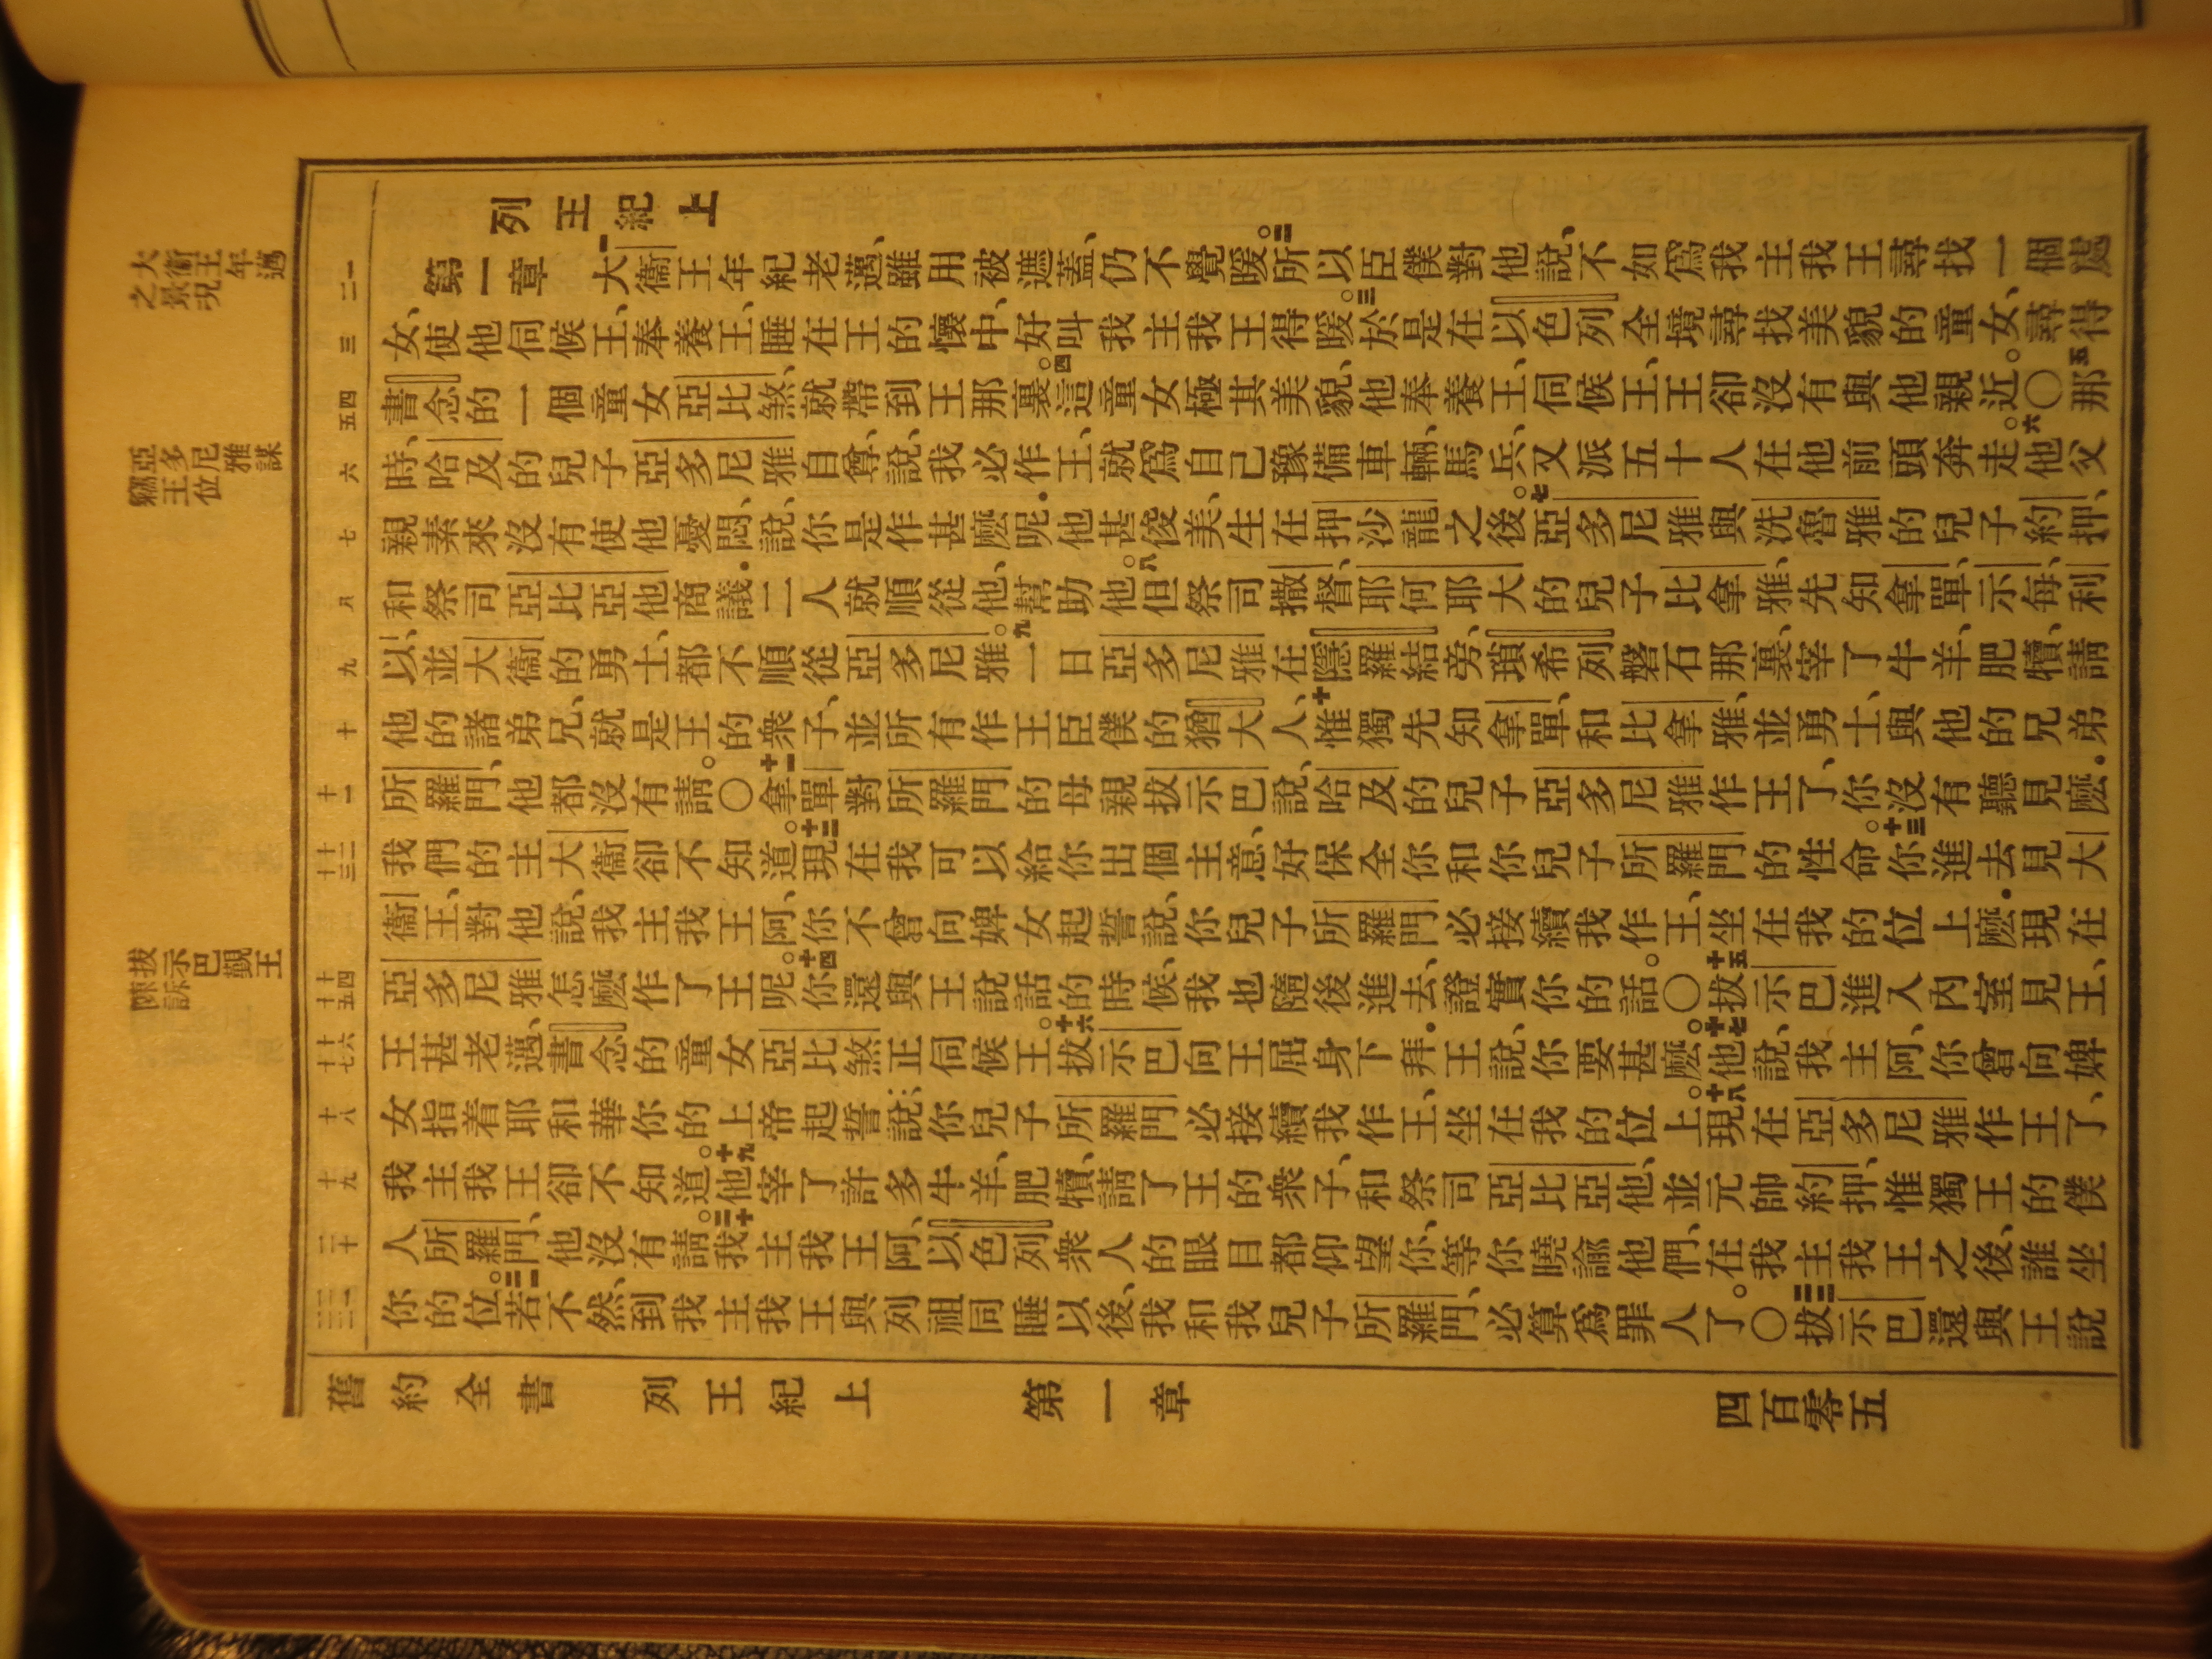 列王紀上
第一章 一大衛王年紀老邁、雖用被遮蓋、仍不覺暖。二所以臣僕對他說、不如爲我主我王尋找一個處
女、使他伺候王、奉養王、睡在王的懷中、好叫我主我王得暖。三於是在以色列全境尋找美貌的童女、尋得
書念的一個童女亞比煞、就帶到王那裏。四這童女極其美貌、他奉養王、伺候王、王卻沒有與他親近。○五那
時、哈及的兒子亞多尼雅自尊、說、我必作王、就爲自己豫備車輛、馬兵、又派五十人在他前頭奔走。六他父
親素來沒有使他憂悶、說、你是作甚麽呢．他甚俊美、生在押沙龍之後。七亞多尼雅與洗魯雅的兒子約押、
和祭司亞比亞他商議．二人就順從他、幫助他。八但祭司撒督、耶何耶大的兒子比拿雅、先知拿單、示每、利
以、並大衛的勇士、都不順從亞多尼雅。九一日亞多尼雅在隱羅結旁、瑣希列磐石那裏、宰了牛羊、肥犢、請
他的諸弟兄、就是王的衆子、並所有作王臣僕的猶大人、十惟獨先知拿單、和比拿雅、並勇士、與他的兄弟
所羅門、他都沒有請。○十一拿單對所羅門的母親拔示巴說、哈及的兒子亞多尼雅作王了、你沒有聽見麽．
我們的主大衛卻不知道。十二現在我可以給你出個主意、好保全你和你兒子所羅門的性命。十三你進去見大
衛王、對他說、我主我王阿、你不曾向婢女起誓說、你兒子所羅門必接續我作王、坐在我的位上麽．現在
亞多尼雅怎麽作了王呢。十四你還與王說話的時候、我也隨後進去、證實你的話。○十五拔示巴進入內室見王、
王甚老邁、書念的童女亞比煞正伺候王。十六拔示巴向王屈身下拜．王說、你要甚麽。十七他說、我主阿、你曾向婢
女指着耶和華你的上帝起誓說、你兒子所羅門必接續我作王、坐在我的位上。十八現在亞多尼雅作王了、
我主我王卻不知道。十九他宰了許多牛羊、肥犢、請了王的衆子、和祭司亞比亞他、並元帥約押、惟獨王的僕
人所羅門、他沒有請。二十我主我王阿、以色列衆人的眼目都仰望你、等你曉諭他們、在我主我王之後、誰坐
你的位。二一若不然、到我主我王與列祖同睡以後、我和我兒子所羅門、必算爲罪人了。○二二拔示巴還與王說
大衛王年邁
之景況
亞多尼雅謀
簒王位
拔示巴覲王
陳訴
舊約全書 列王紀上 第一章 四百零五